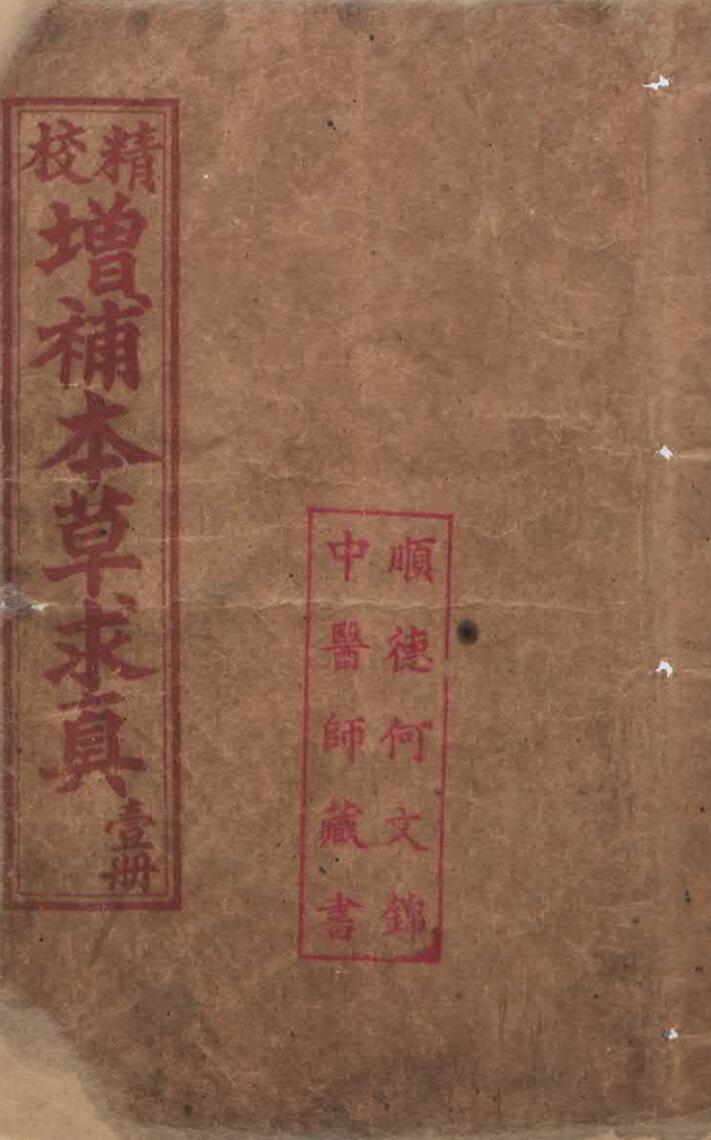 精校
增補本草求真
壹册
順德何文錦
中醫師藏書